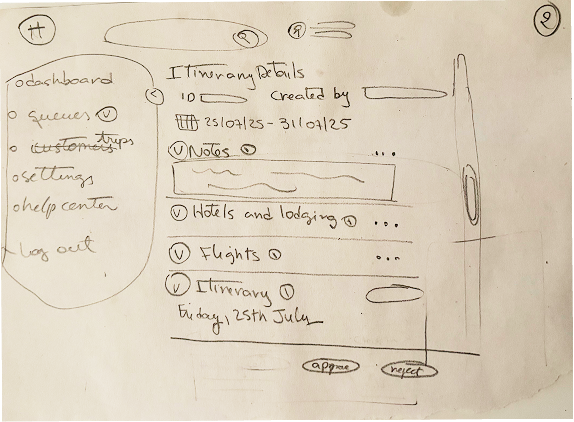 H
2
dashboard
queues
customers trips
settings
help center
Log out
Itinerary Details
ID created by
25/07/25 - 31/07/25
Notes ...
Hotels and lodging ...
Flights ...
Itinerary
Friday, 25th July
approve reject